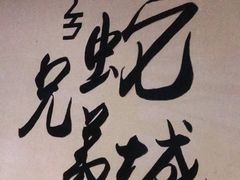 蛇城
兄弟